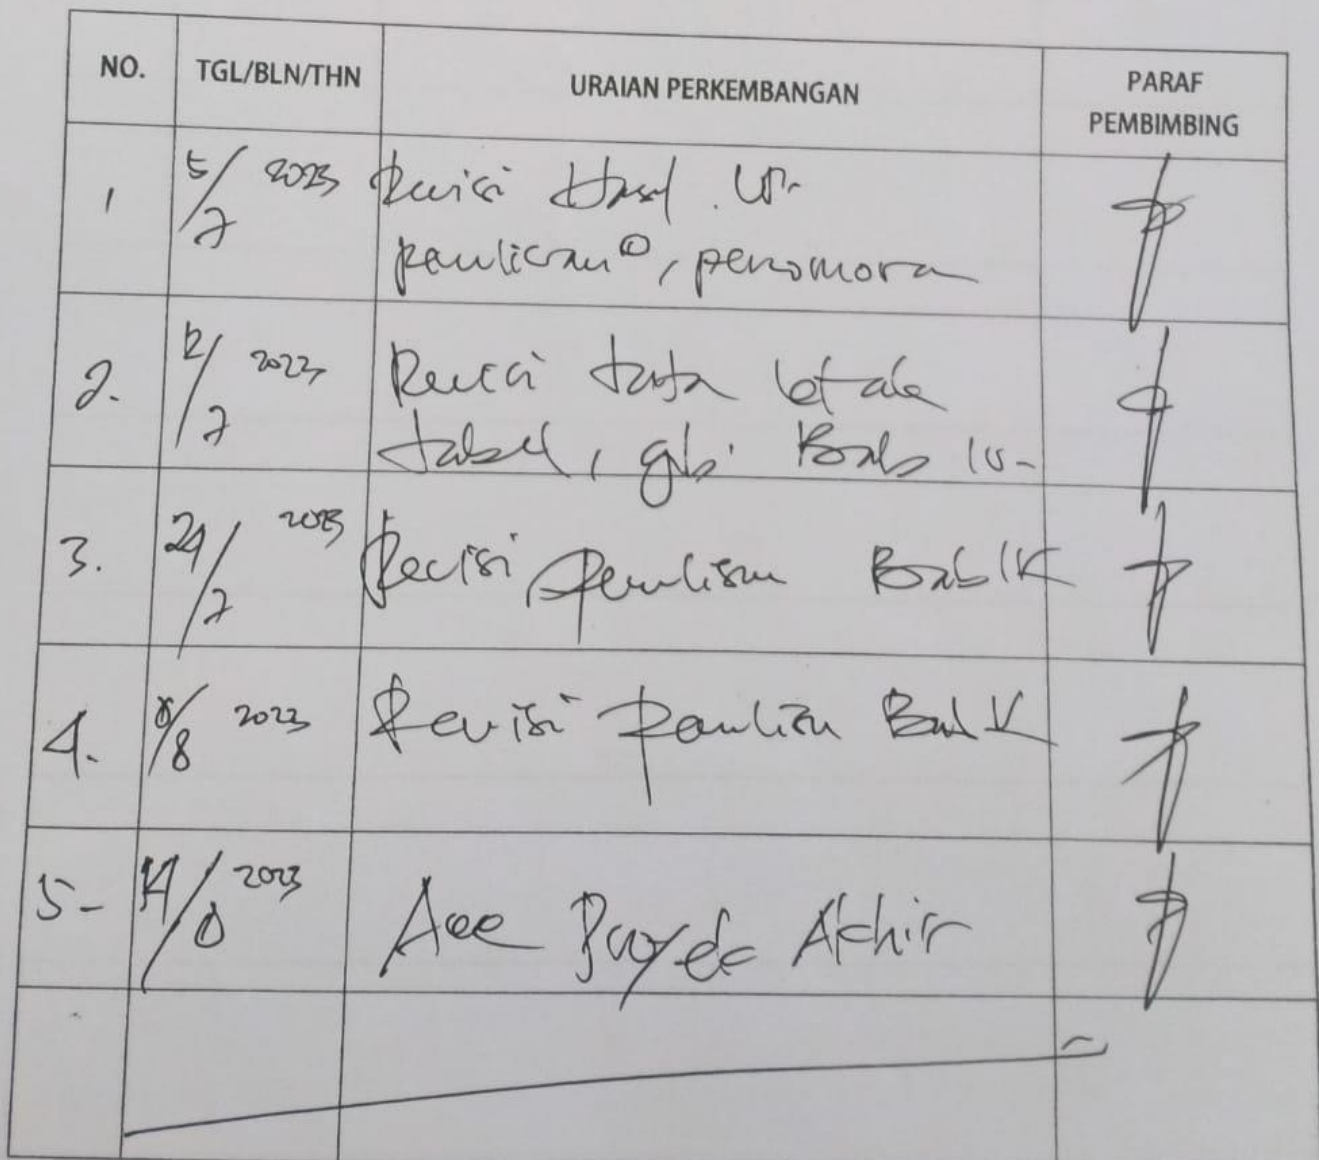 NO. TGL/BLN/THN URAIAN PERKEMBANGAN PARAF
PEMBIMBING
1 5/7 2023 Revisi Hasil
penomoran
2. 12/7 2023 Revisi tata letak
tabel, gb. Bab IV-
3. 24/7 2023 Revisi penulisan Bab
4. 8/8 2023 Revisi penulisan Bab V
5- 14/8 2023 Acc Proyek Akhir